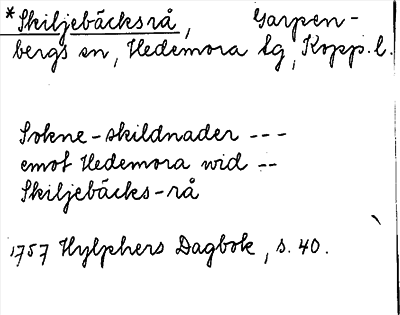 *Skiljebäcksrå, Garpen-
bergs sn, Hedemora lg, Kopp. l.
Sokne-skildnader ---
emot Hedemora wid --
Skiljebäcks-rå
1757 Hylphers Dagbok, s. 40.